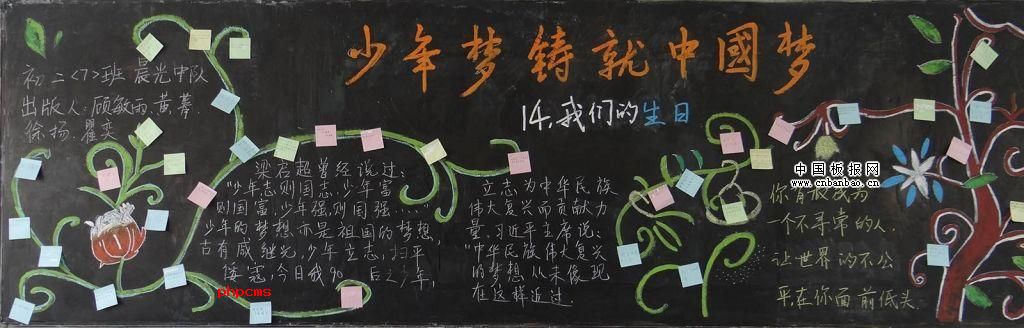 少年梦铸就中國梦
14,我们的生日
初二<7>班 晨光中队
出版人:顾敏雨、黄蓦、
徐扬、瞿奕
梁启超曾经说过:
“少年志则国志,少年富
则国富,少年强,则国强……”
少年的梦想,亦是祖国的梦想,
古有戚继光,少年立志,扫平
倭寇,今日我90后之少年,
立志为中华民族
伟大复兴而贡献力
量,习近平主席说:
“中华民族伟大复兴
的梦想从未像现
在这样近过
你肯做成为
一个不寻常的人.
让世界的不公
平,在你面前低头.
中国板报网
www.cnbanbao.cn
phpcms